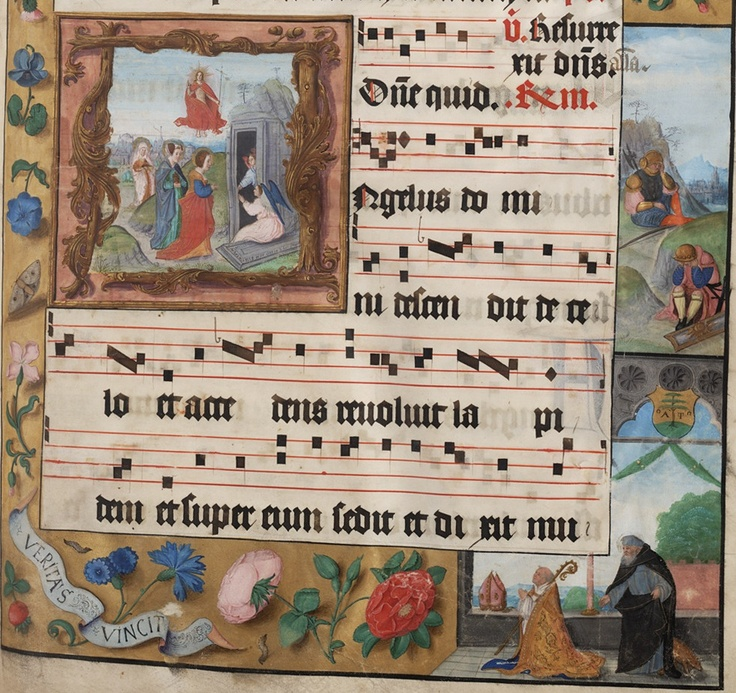 ℣. Resurre
xit dn̄s. alla.
Dn̄e quid.
Ngelus do mi
ni descen dit de ce
lo et acce dens revoluit la pi
dem et super eum sedit et di xit mu
VERITAS
VINCIT
A T